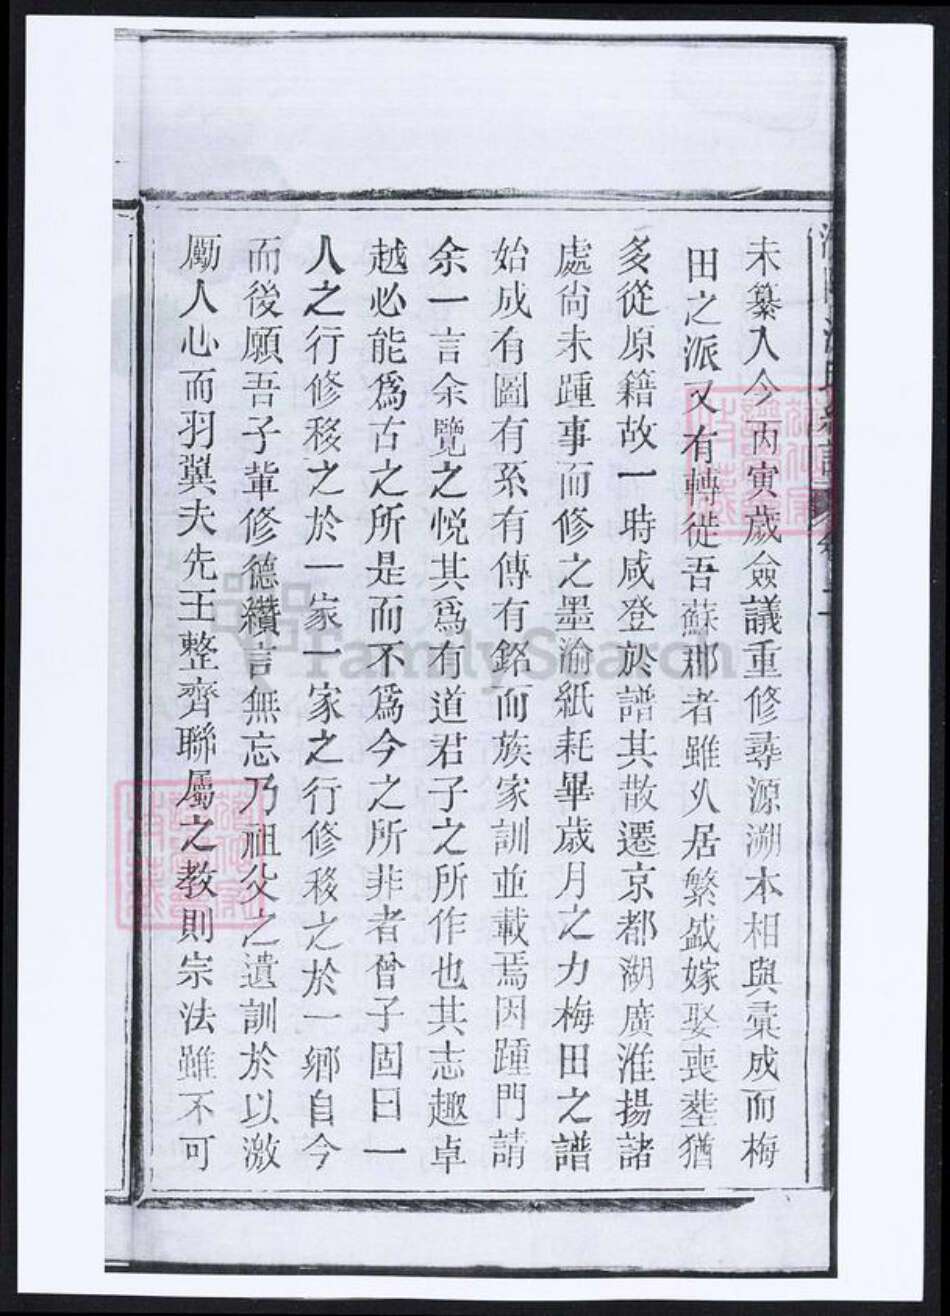 未纂入今丙寅歲僉議重修尋源溯本相與彚成而梅
田之派又有轉徙吾蘇郡者雖乆居繁盛嫁娶喪塟猶
多從原籍故一時咸登於譜其散遷京都湖廣淮揚諸
處尙未踵事而修之墨渝紙耗畢歲月之力梅田之譜
始成有圖有系有傳有銘而族家訓並載焉因踵門請
余一言余覽之悅其爲有道君子之所作也其志趣卓
越必能爲古之所是而不爲今之所非者曾子固曰一
人之行修移之於一家一家之行修移之於一鄉自今
而後願吾子輩修德纘言無忘乃祖父之遺訓於以激
勵人心而羽翼夫先王整齊聯屬之教則宗法雖不可
FamilySearch